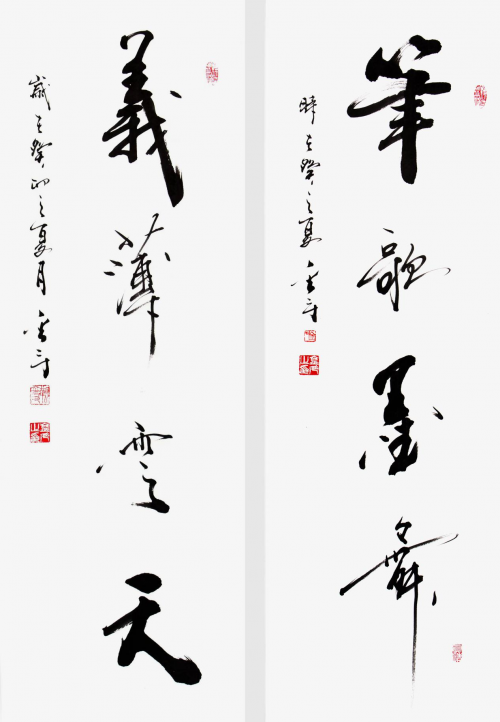 筆歌墨舞
時在癸之夏
義薄雲天
歲在癸卯之夏月